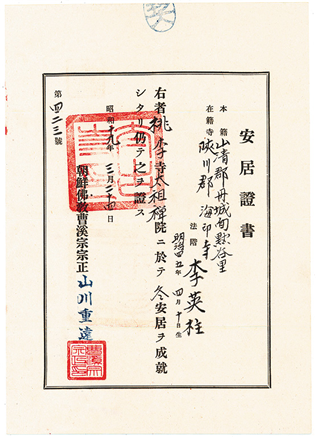 安居證書
本籍 山清郡丹城面默谷里
在籍寺 陜川郡 海印寺
法階 李英柱
明治四五年 四月十日生
右者桃李寺太祖禪院ニ於テ冬安居ヲ成就
シタリ仍テ之ヲ證ス
昭和十九年 月 日
朝鮮佛教曹溪宗宗正 山川重遠
第四二三號